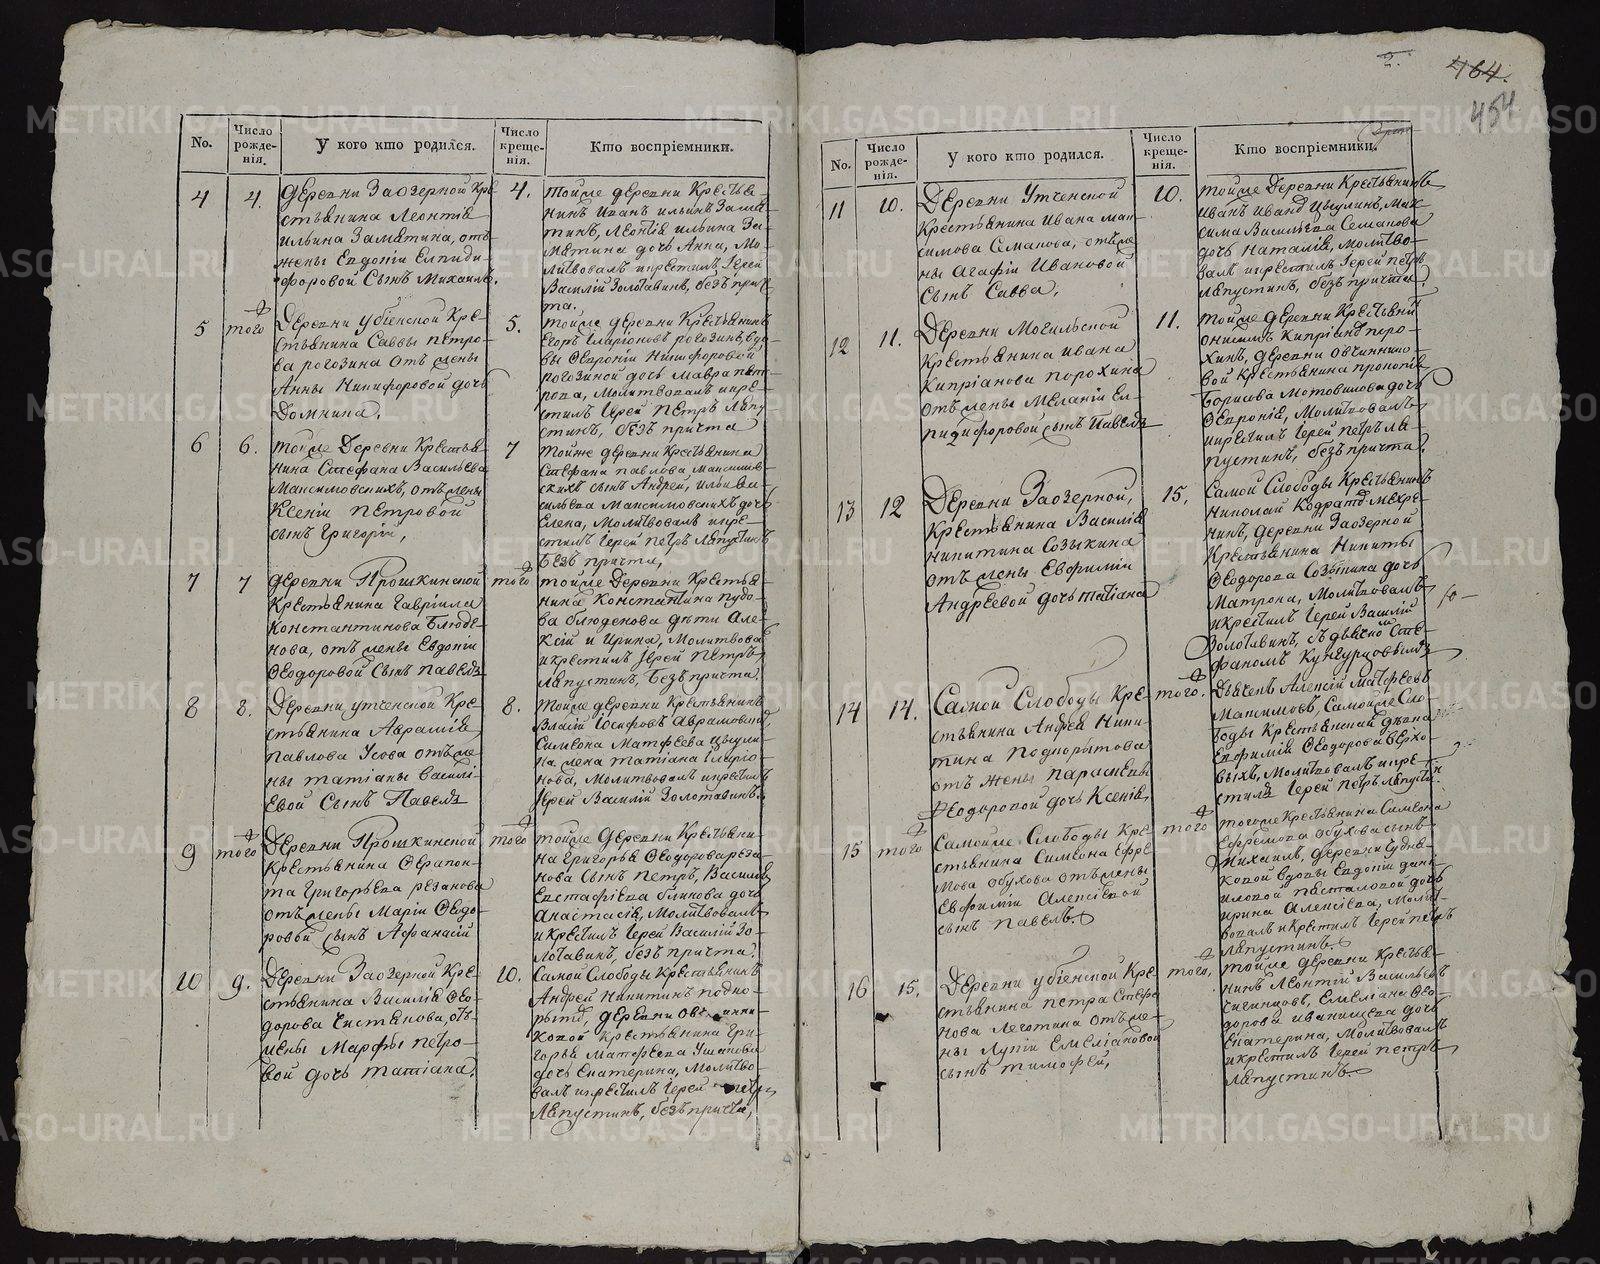 2.
464.
454
No.
Число рожде-
нія.
У кого кто родился.
Число креще-
нія.
Кто воспріемники.
4
4.
Деревни Заозерной Кре
стьянина Леонтія
Ильина Замятина, отъ
жены Евдокіи Елпиди-
форовой Сынъ Михаилъ.
4.
тойже деревни Крестья-
нинъ Иванъ Ильинъ Замя-
тинъ, Леонтія Ильина За-
мятина дочь Анна, Мо-
литвовалъ и крестилъ Іерей
Василій Золотавинъ, безъ прич-
та.
5
того
Деревни Убіенской Кре-
стьянина Саввы Петро-
ва рогозина отъ жены
Анны Никифоровой дочь
Домнина.
5.
тойже деревни Крестьянинъ
Егоръ Иларіоновъ рогозинъ, вдо-
вы Февроніи Никифоровой
рогозиной дочь Мавра Пет-
рова, Молитвовалъ и кре-
стилъ Іерей Петръ Ляпу-
стинъ, безъ причта
6
6.
тойже Деревни Крестья-
нина Стефана Васильева
Максимовскихъ, отъ жены
Ксеніи Петровой
сынъ Григорій,
7
тойже деревни Крестьянина
Стефана Павлова Максимов-
скихъ сынъ Андрей, Ильи Ва-
сильева Максимовскихъ дочь
Елена, Молитвовалъ и кре-
стилъ Іерей Петръ Ляпустинъ
безъ причта,
7
7
Деревни Прошкинской
Крестьянина Гавріила
Константинова Блюде-
нова, отъ жены Евдокіи
Феодоровой Сынъ Павелъ
того
тойже Деревни Крестья-
нина Константина
ва блюденова дѣти Але-
ксій и Ирина, Молитвовалъ
и крестилъ Іерей Петръ
Ляпустинъ, Безъ причта.
8
8.
Деревни Утченской Кре-
стьянина Аврамія
Павлова Усова отъ же-
ны татіаны Василі-
евой Сынъ Павелъ
8.
Тойже деревни Крестьянинъ
Власій Іосифовъ
Симеона Матфеева Цыули-
на жена татіана Иларіо-
нова, Молитвовалъ и крестилъ
Іерей Василій Золотавинъ.
9
того
Деревни Прошкинской
Крестьянина Ферапон-
та Григорьева рязанова
отъ жены Маріи Феодо-
ровой сынъ Афанасій
того
тойже Деревни Крестьяни-
на Григорья Феодорова ряза-
нова Сынъ Петръ, Василія
Евстафіева блинова дочь
Анастасія, Молитвовалъ
и крестилъ Іерей Василій Зо-
лотавинъ, безъ причта.
10
9.
Деревни Заозерной Кре-
стьянина Василія Фео-
дорова Чистякова, отъ
жены Марфы Петро-
вой дочь татіана.
10.
Самой Слободы Крестьянинъ
Андрей Никитинъ Подко-
рытъ, деревни Овчинни-
ковой Крестьянина Гри-
горья Матфеева Ушакова
дочь Екатерина, Молитво-
валъ и крестилъ Іерей Петръ
Ляпустинъ, безъ причта,
No.
Число рожде-
нія.
У кого кто родился.
Число креще-
нія.
Кто воспріемники.
11
10.
Деревни Утченской
Крестьянина Ивана Мак-
симова Семакова, отъ же
ны Агафіи Ивановой
Сынъ Савва,
10.
тойже Деревни Крестьянинъ
Иванъ Ивановъ Цыулинъ, Мак-
сима Васильева Семакова
дочь Наталія, Молитво-
валъ и крестилъ Іерей Петръ
Ляпустинъ, безъ причта.
12
11.
Деревни Могильской
Крестьянина Ивана
Кипріанова Порохина
отъ жены Меланіи Ел-
пидифоровой сынъ Павелъ
11.
тойже деревни Крестьяни
Онисимъ Кипріановъ Поро-
хинъ, деревни Овчинни-
вой Крестьянина Прокопія
Борисова Мотовилова дочь
Февронія, Молитвовалъ
и крестилъ Іерей Петръ Ля-
пустинъ, безъ причта.
13
12
Деревни Заозерной,
Крестьянина Василія
Никитина Созыкина
отъ жены Евфиміи
Андреевой дочь татіана
15,
Самой Слободы Крестьянинъ
Николай Кодратовъ Мехре-
нинъ, деревни Заозерной
Крестьянина Никиты
Феодорова Созыкина дочь
Матрона, Молитвовалъ
и крестилъ Іерей Василій
Золотавинъ, съ дьячкомъ Сте-
фаномъ Кунгурцовымъ
14
14.
Самой Слободы Кре-
стьянина Андрея Ники-
тина Подкорытова
отъ жены Параскевы
Феодоровой дочь Ксенія,
того.
Дьячекъ Алексій Матфеевъ
Максимовъ, Самойже Сло-
боды Крестьянская дѣвка
Евфимія Феодорова Верхо-
выхъ, Молитвовалъ и кре-
стилъ Іерей Петръ Ляпустин
15
того
Самойже Слободы Кре-
стьянина Симеона Ефре-
мова Обухова отъ жены
Евфиміи Алексіевой
сынъ Павелъ.
того
тогоже Крестьянина Симеона
Ефремова Обухова сынъ
Михаилъ, деревни
ковой вдовы Евдокіи Дани-
ловой Пасталовой дочь
Ирина Алексіева, Молит-
вовалъ и крестилъ Іерей Петръ
Ляпустинъ.
16
15.
Деревни Убіенской Кре-
стьянина Петра Стефа-
нова Леготина отъ же-
ны Лукіи Емеліановой
сынъ тимофей,
того,
тойже деревни Крестья-
нинъ Леонтій Васильевъ
Чигинцовъ, Емеліана Фео-
дорова Иванищева дочь
Екатерина, Молитвовалъ
и крестилъ Іерей Петръ
Ляпустинъ.
METRIKI.GASO-URAL.RU